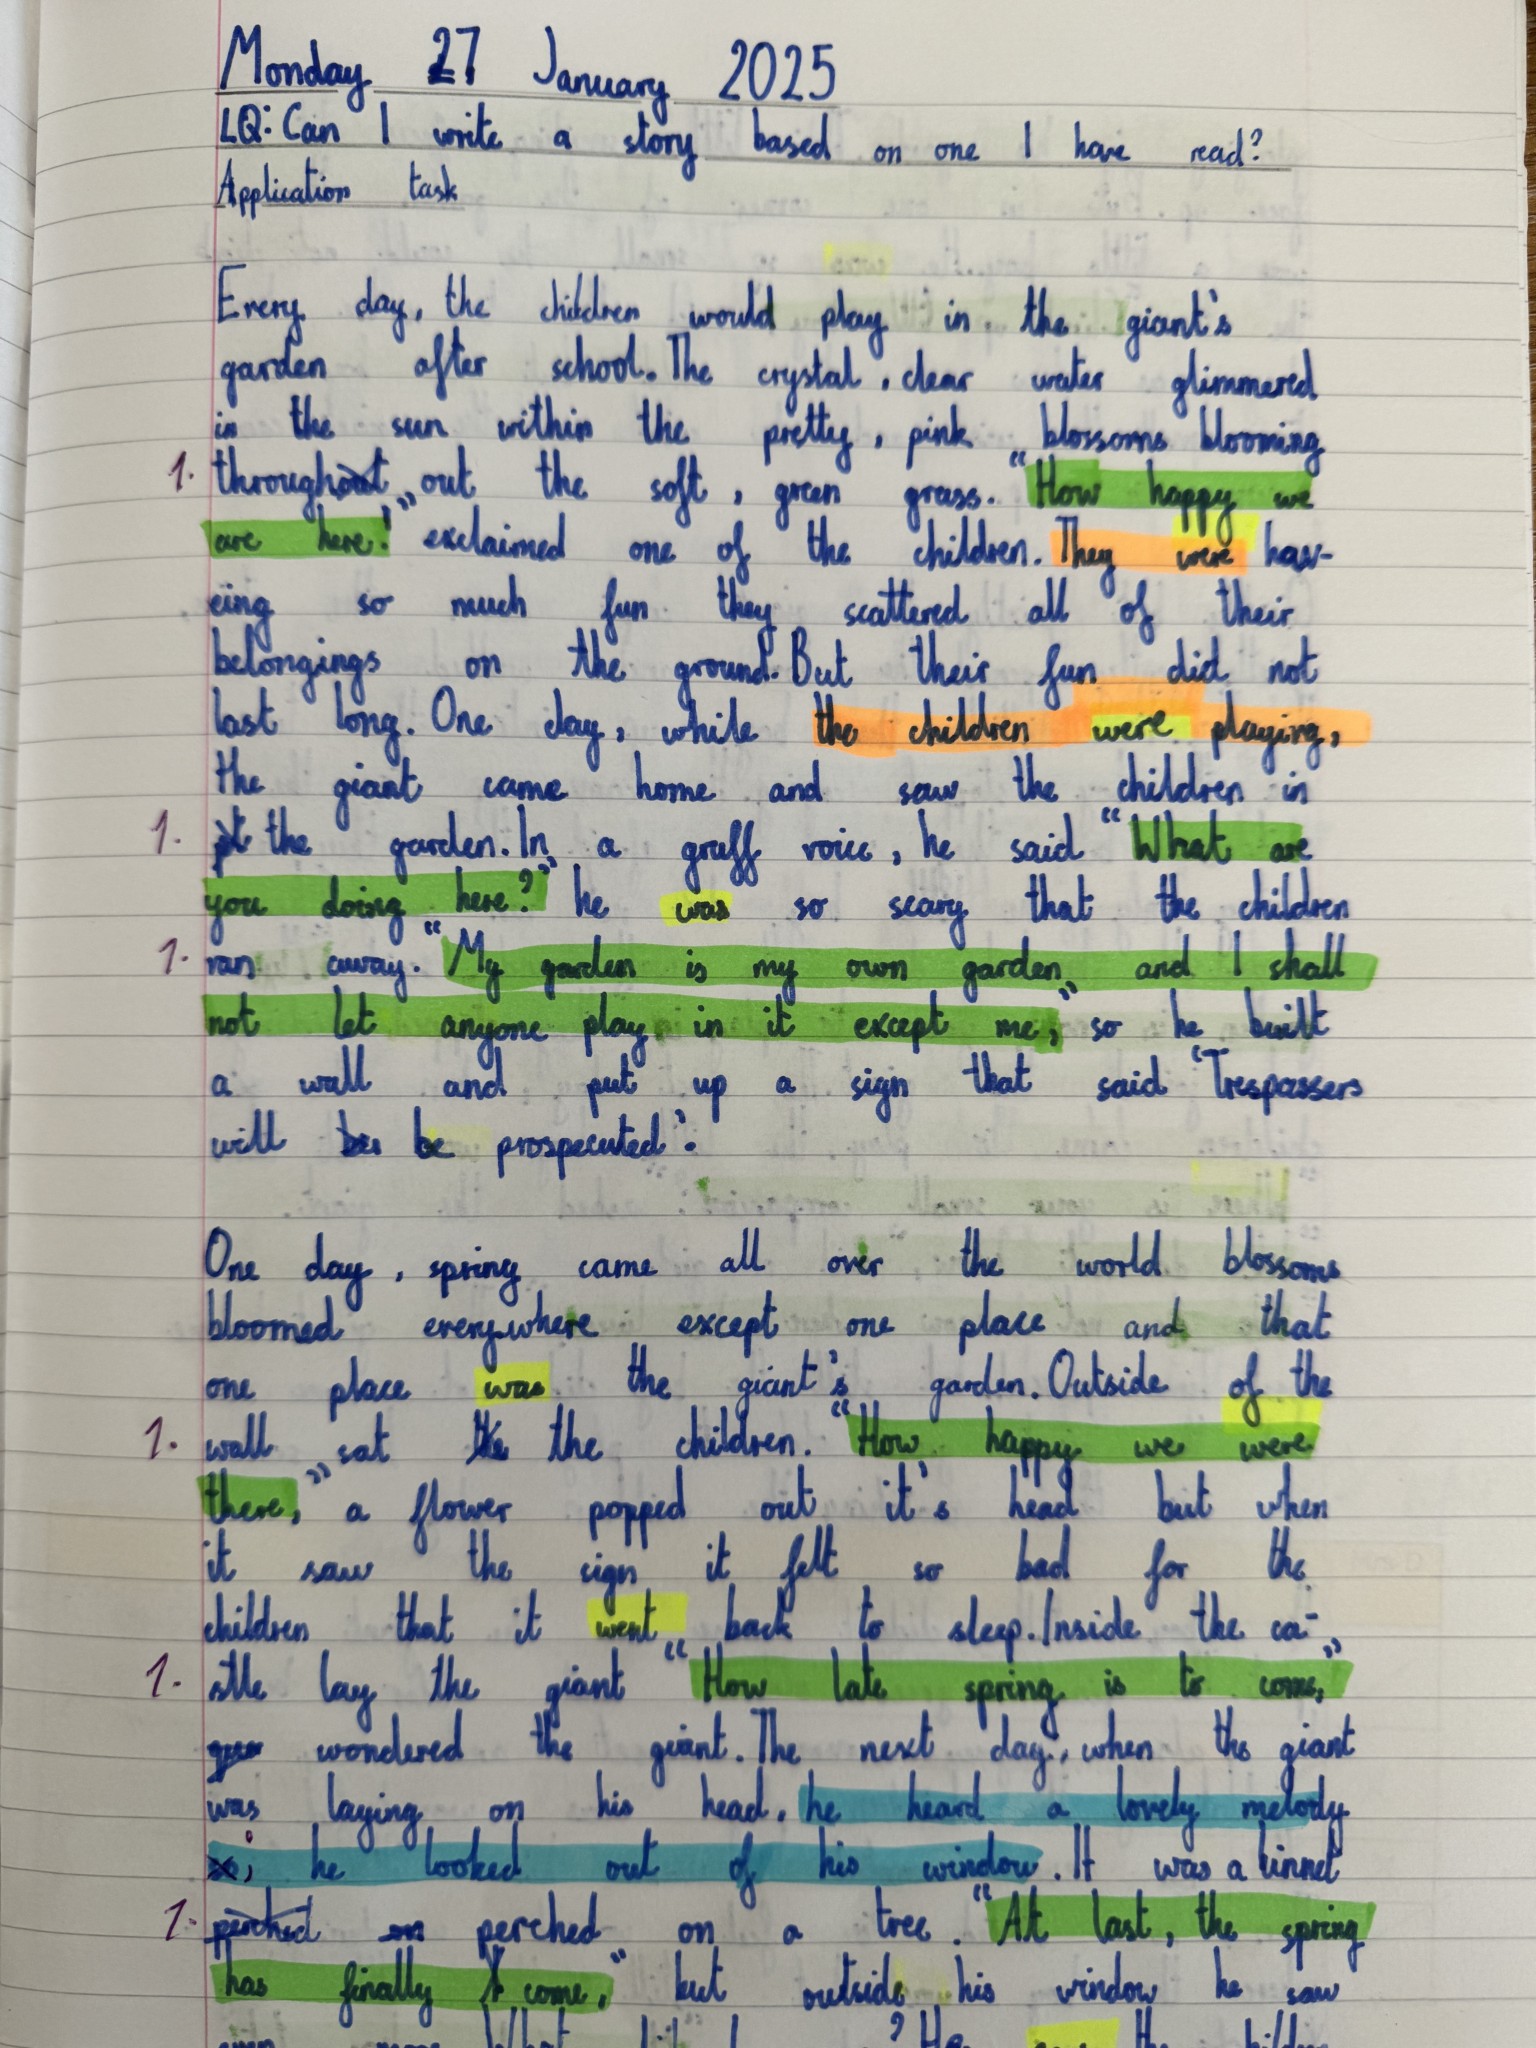 Monday 27 January 2025
LQ: Can I write a story based on one I have read?
Application task
Every day, the children would play in the giant's
garden after school. The crystal, clear water glimmered
in the sun within the pretty, pink blossoms blooming
1. throughout out the soft, green grass. "How happy we
are here!" exclaimed one of the children. They were hav-
eing so much fun they scattered all of their
belongings on the ground. But their fun did not
last long. One day, while the children were playing,
the giant came home and saw the children in
1. the garden. In a gruff voice, he said "What are
you doing here?" he was so scary that the children
1. ran away. "My garden is my own garden and I shall
not let anyone play in it except me," so he built
a wall and put up a sign that said 'Trespassers
will be prospecuted'.
One day, spring came all over the world blossoms
bloomed everywhere except one place and that
one place was the giant's garden. Outside of the
1. wall sat the children. "How happy we were
there," a flower popped out it's head but when
it saw the sign it felt so bad for the
children that it went back to sleep. Inside the ca-
1. stle lay the giant "How late spring is to come,"
wondered the giant. The next day, when the giant
was laying on his head, he heard a lovely melody
; he looked out of his window. It was a linnet
1. perched on perched on a tree. "At last, the spring
has finally come," but outside his window he saw
even more What ? He the